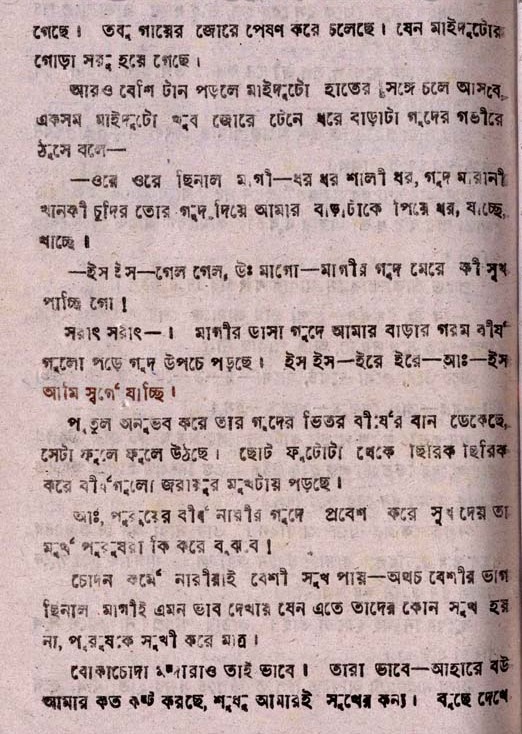 গেছে। তবু গায়ের জোরে পেষণ করে চলেছে। যেন মাইদুটোর
গোড়া সরু হয়ে গেছে।
আরও বেশি টান পড়লে মাইদুটো হাতের সঙ্গে চলে আসবে,
একসম মাইদুটো খুব জোরে টেনে ধরে বাড়াটা গুদের গভীরে
ঠুসে বলে—
—ওরে ওরে ছিনাল মাগী—ধর ধর শালী ধর, গুদ মারানী
খানকী চুদির তোর গুদ দিয়ে আমার বাড়াটাকে পিষে ধর, যাচ্ছে,
যাচ্ছে।
—ইস ইস—গেল গেল, উঃ মাগো—মাগীর গুদ মেরে কী সুখ
পাচ্ছি গো!
সরাৎ সরাৎ—। মাগীর ডাসা গুদে আমার বাড়ার গরম বীর্য
গুলো পড়ে গুদ উপচে পড়ছে। ইস ইস—ইরে ইরে—আঃ—ইস
আমি স্বর্গে যাচ্ছি।
পুতুল অনুভব করে তার গুদের ভিতর বীর্যের বান ডেকেছে,
সেটা ফুলে ফুলে উঠছে। ছোট ফুটোটা থেকে ছিরিক ছিরিক
করে বীর্যগুলো জরায়ুর মুখটায় পড়ছে।
আঃ, পুরুষের বীর্য নারীর গুদে প্রবেশ করে সুখ দেয় তা
মূর্খ পুরুষরা কি করে বুঝব!
চোদন কর্মে নারীরাই বেশী সুখ পায়—অথচ বেশীর ভাগ
ছিনাল মাগীই এমন ভাব দেখায় যেন এতে তাদের কোন সুখ হয়
না, পুরুষকে সুখী করে মাত্র।
বোকাচোদা মদ্দারাও তাই ভাবে। তারা ভাবে—আহারে বউ
আমার কত কষ্ট করছে, শুধু আমারই সুখের কন্য। বুছে দেখে